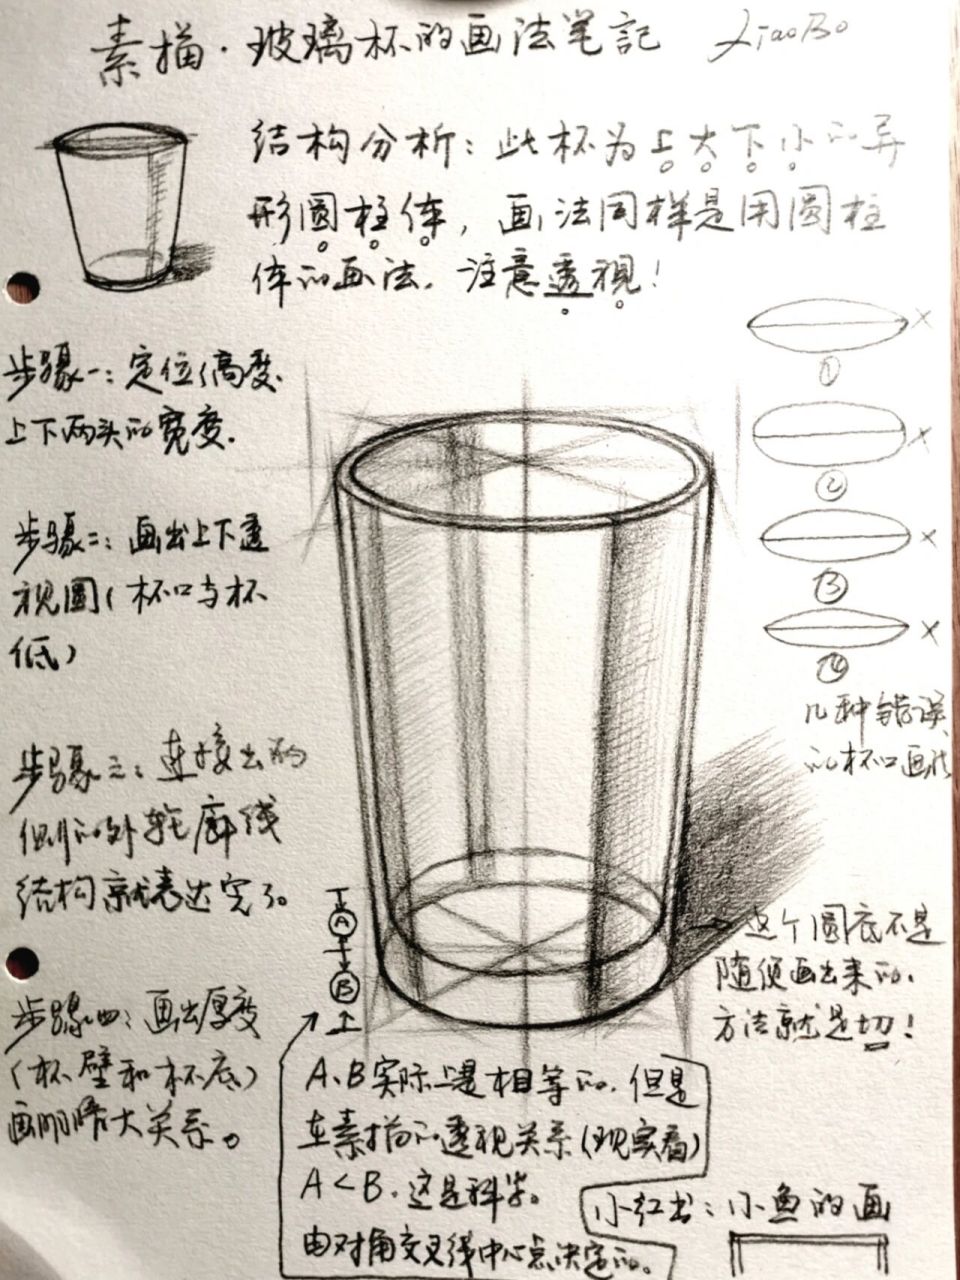 素描·玻璃杯的画法笔記 XiaoBo
结构分析：此杯为上大下小的异
形圆柱体，画法同样是用圆柱
体的画法。注意透视！
步骤一：定位（高度.
上下两头的宽度.
步骤二：画出上下透
视圆（杯口与杯
低）
步骤三：连接出两
侧的外轮廓线
结构就表达完了。
步骤四：画出厚度
（杯壁和杯底）
画明暗大关系。
× ①
× ②
× ③
× ④
几种错误
的杯口画法
这个圆底不是
随便画出来的.
方法就是切！
A
B
A、B实际上是相等的.但是
在素描的透视关系（现实看）
A<B.这是科学。
由对角交叉线中心点决定的。
小红书：小鱼的画